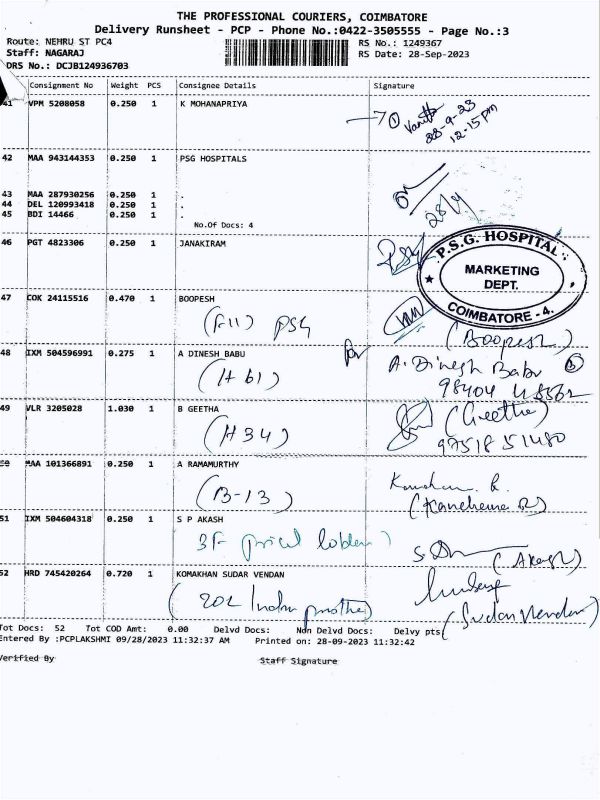 THE PROFESSIONAL COURIERS, COIMBATORE
Delivery Runsheet - PCP - Phone No.:0422-3505555 - Page No.:3
Route: NEHRU ST PC4
RS No.: 1249367
Staff: NAGARAJ
RS Date: 28-Sep-2023
DRS No.: DCJB124936703
Consignment No Weight PCS Consignee Details Signature
41 VPM 5208058 0.250 1 K MOHANAPRIYA
28-9-23
12-15pm
42 MAA 943144353 0.250 1 PSG HOSPITALS
43 MAA 287930256 0.250 1 .
44 DEL 120993418 0.250 1 .
45 BDI 14466 0.250 1 .
28/9
No.Of Docs: 4
46 PGT 4823306 0.250 1 JANAKIRAM
P.S.G. HOSPITAL
MARKETING
DEPT.
COIMBATORE - 4.
47 COK 24115516 0.470 1 BOOPESH
(F11) PSG
(Boopesh)
48 IXM 504596991 0.275 1 A DINESH BABU
A. Dinesh Babu
(H 61)
98404
49 VLR 3205028 1.030 1 B GEETHA
(Geetha)
(H34)
97518 51480
50 MAA 101366891 0.250 1 A RAMAMURTHY
(B-13)
(Kanchana R)
51 IXM 504604318 0.250 1 S P AKASH
3F
(Akash)
52 HRD 745420264 0.720 1 KOMAKHAN SUDAR VENDAN
(202
(Sudar Vendan)
Tot Docs: 52 Tot COD Amt: 0.00 Delvd Docs: Non Delvd Docs: Delvy pts
Entered By :PCPLAKSHMI 09/28/2023 11:32:37 AM Printed on: 28-09-2023 11:32:42
Verified By Staff Signature